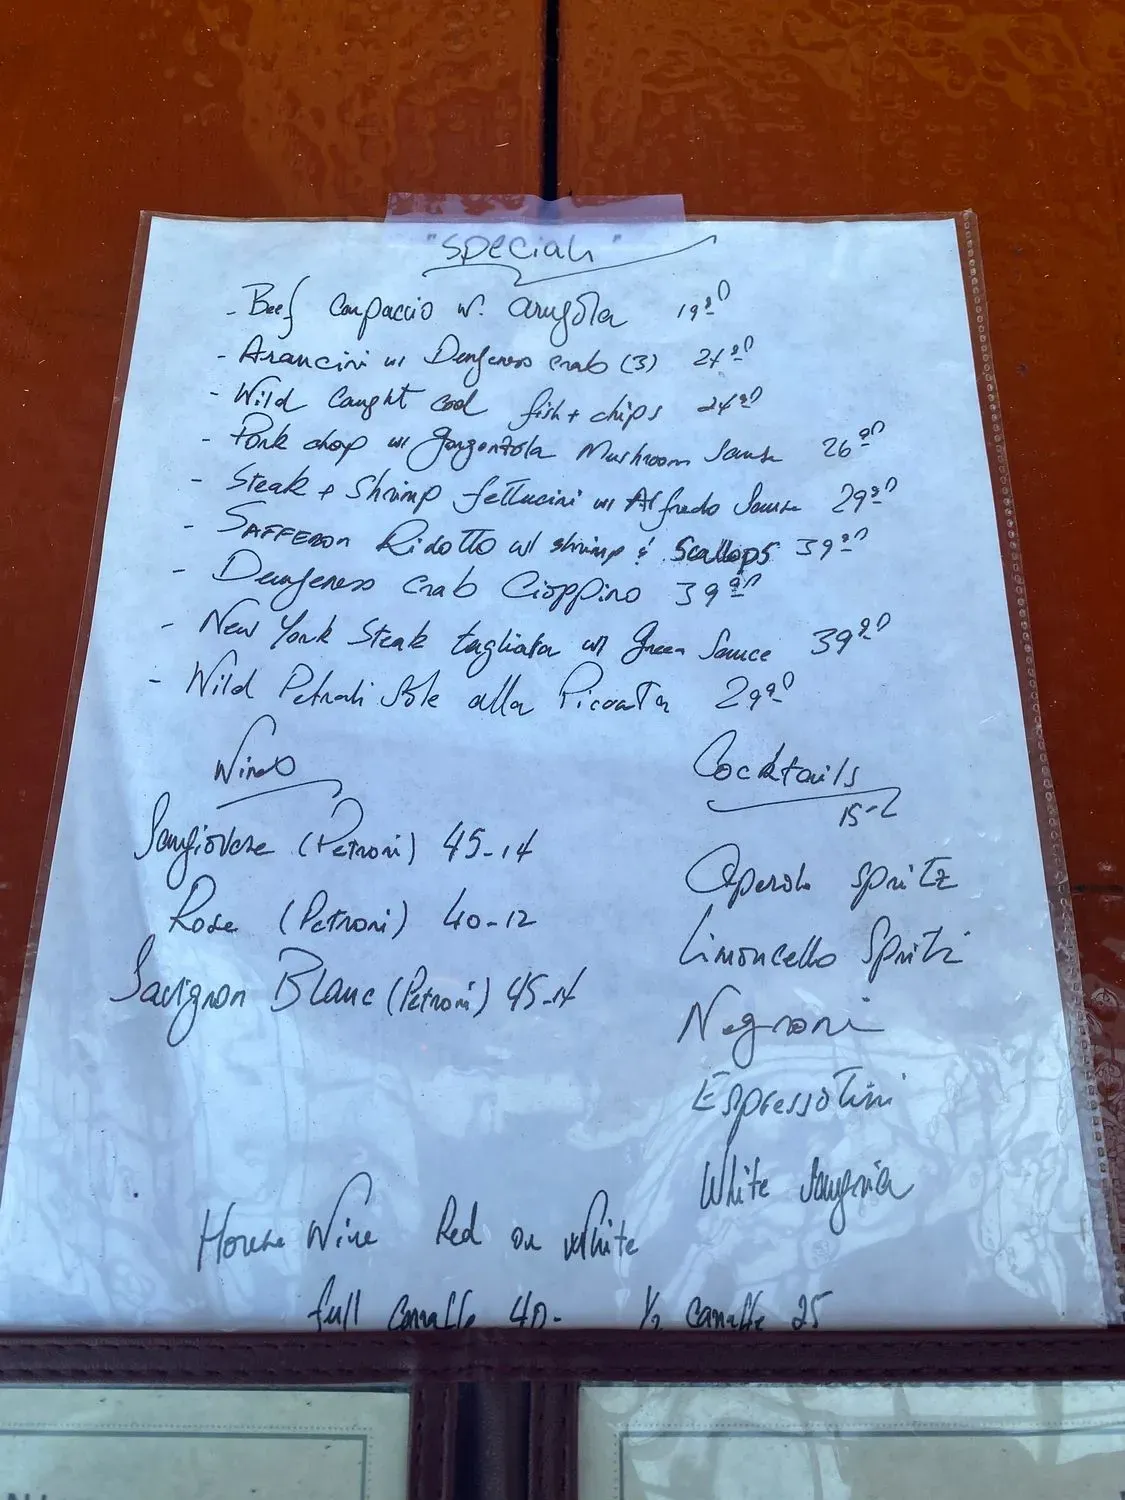 "Speciali"
- Beef Carpaccio w. arugola 19.90
- Arancini w Dungeness crab (3) 24.90
- Wild Caught cod fish + chips 24.90
- Pork chop w Gorgonzola Mushroom Sause 26.90
- Steak + Shrimp fettucini w Alfredo Sause 29.90
- SAFFERON Risotto w/ shrimp & Scallops 39.90
- Dungeness crab Cioppino 39.90
- New York Steak tagliata w Green Sauce 39.90
- Wild Petrali Sole alla Piccata 29.90
Wines
Sangiovese (Petroni) 45-14
Rose (Petroni) 40-12
Sauvignon Blanc (Petroni) 45-14
Cocktails
15-
Aperol spritz
Limoncello Spritz
Negroni
Espressotini
White Sangria
House Wine Red or White
full caraffe 40- 1/2 caraffe 25